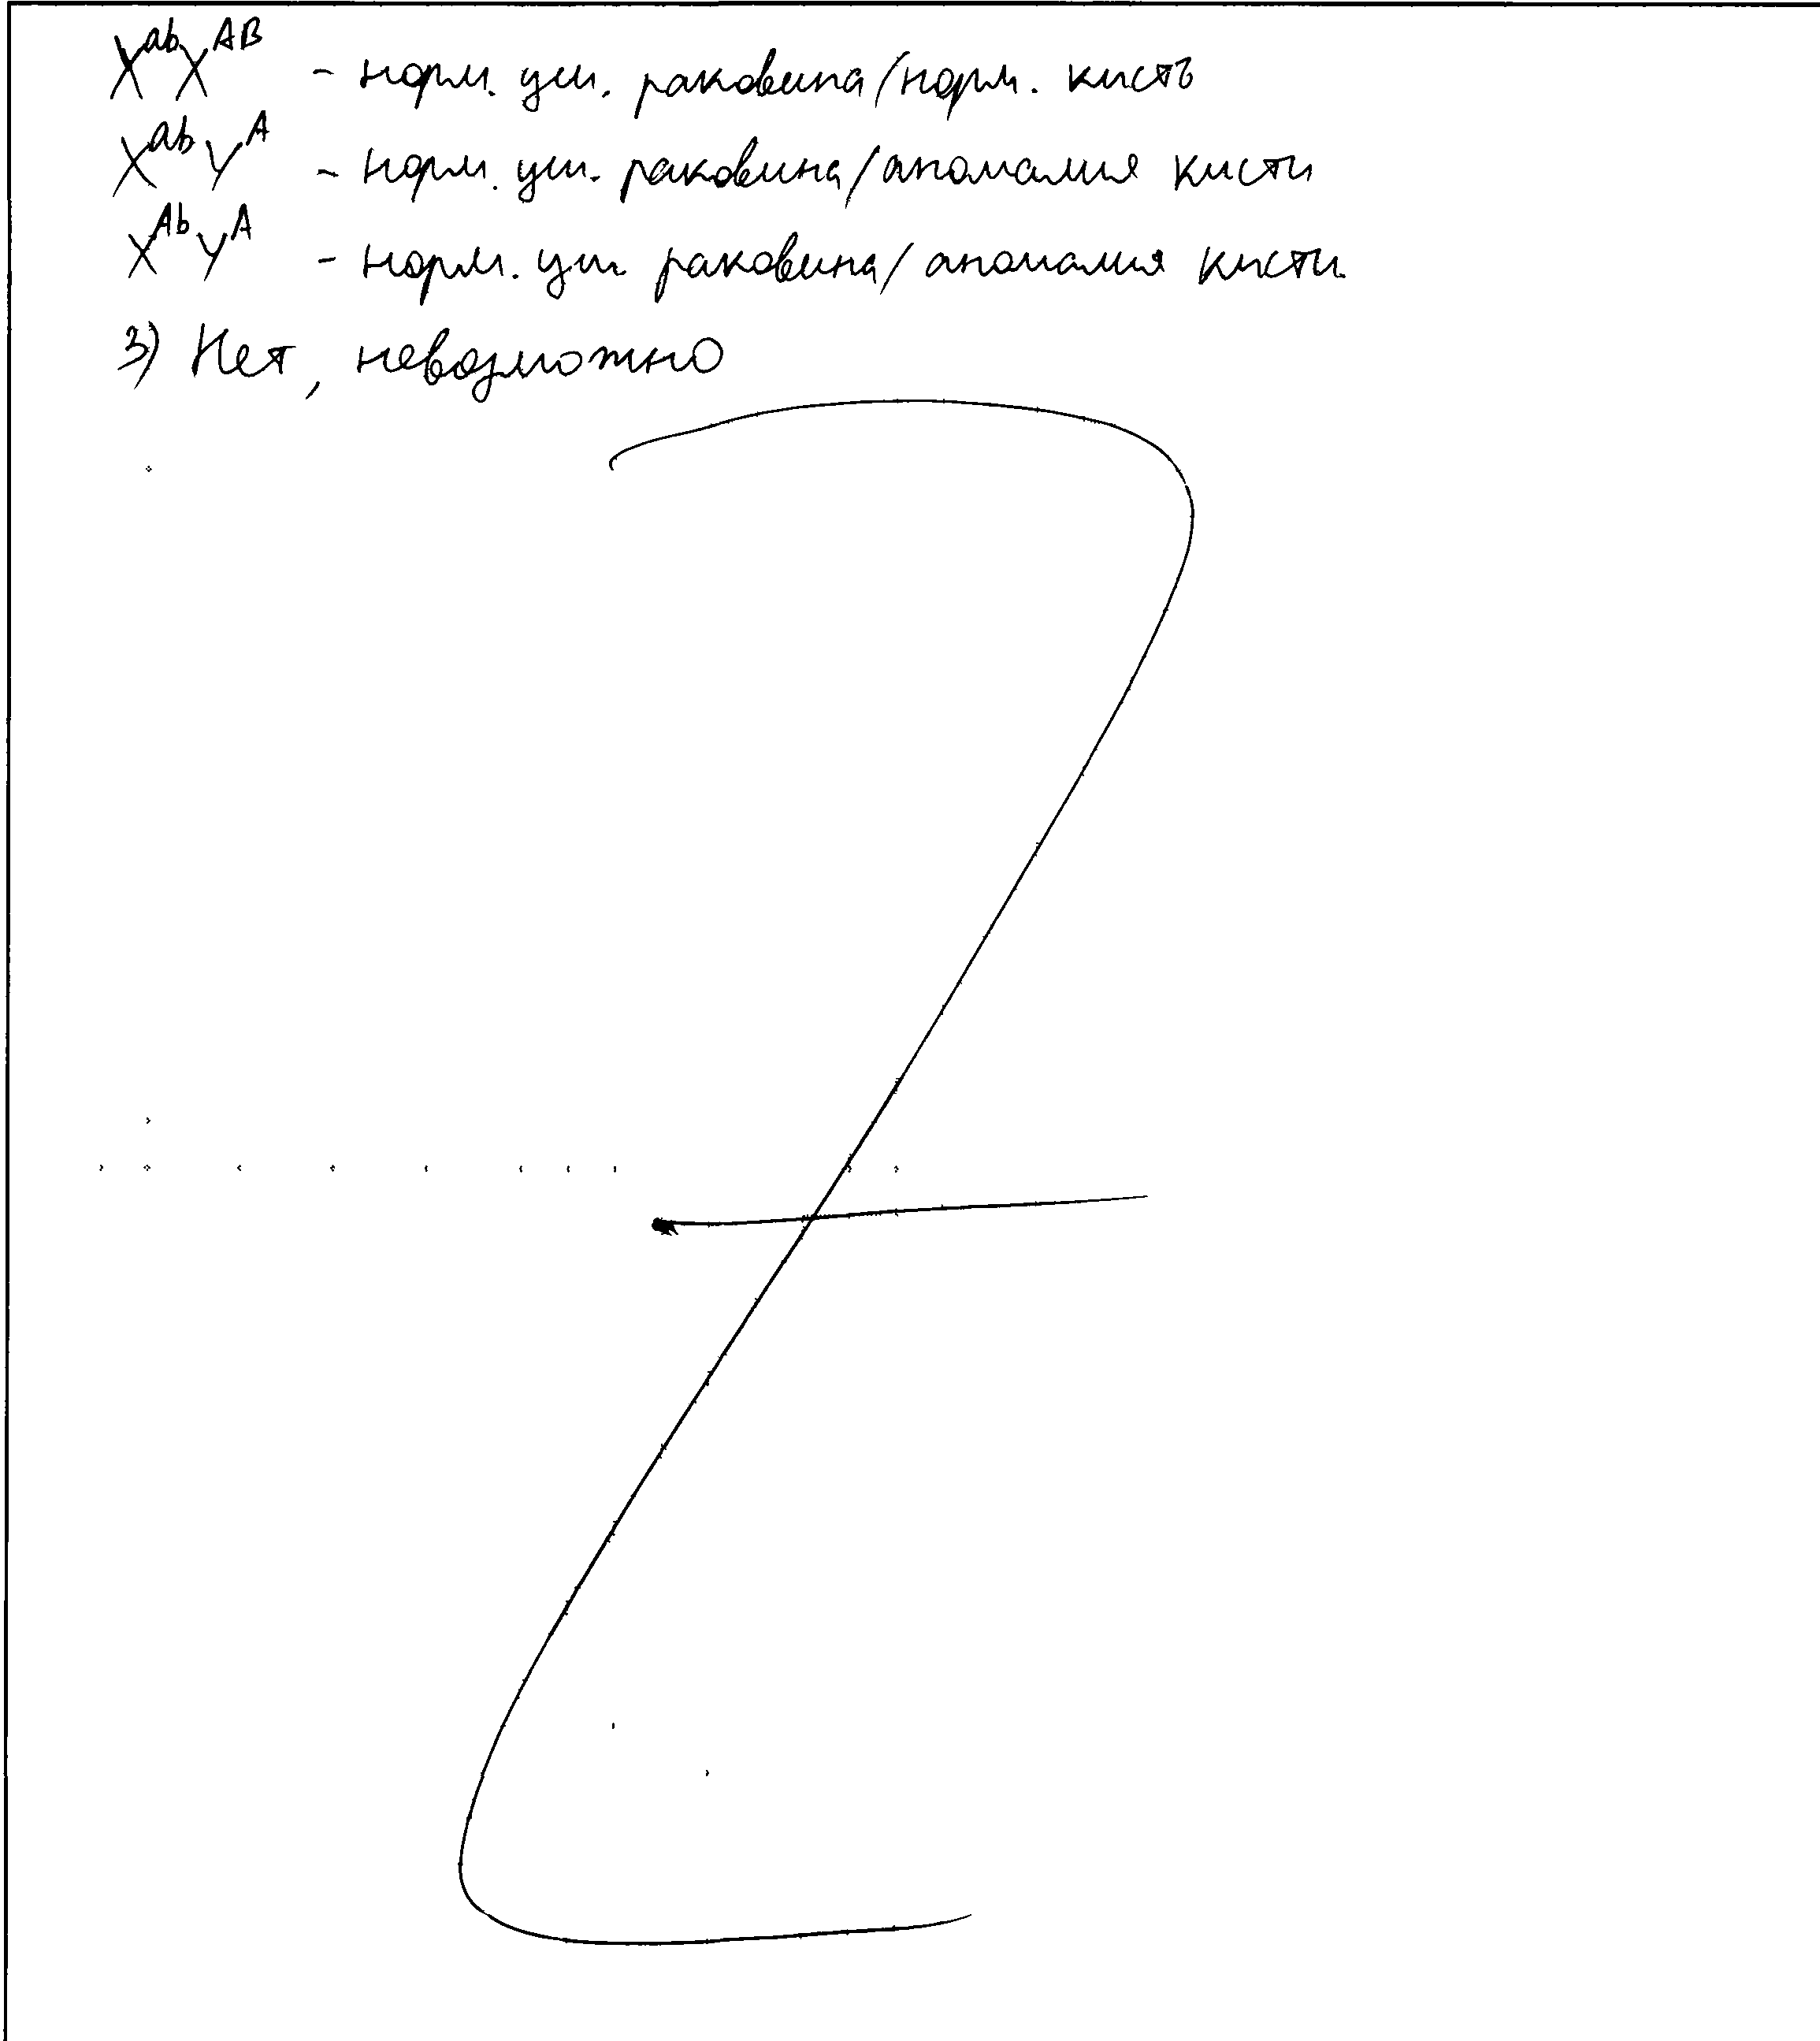 X^ab X^AB - норм. уш. раковина/норм. кисть
X^ab Y^A - норм. уш. раковина/аномалия кисти
X^Ab Y^A - норм. уш. раковина/аномалия кисти.
3) Нет, невозможно